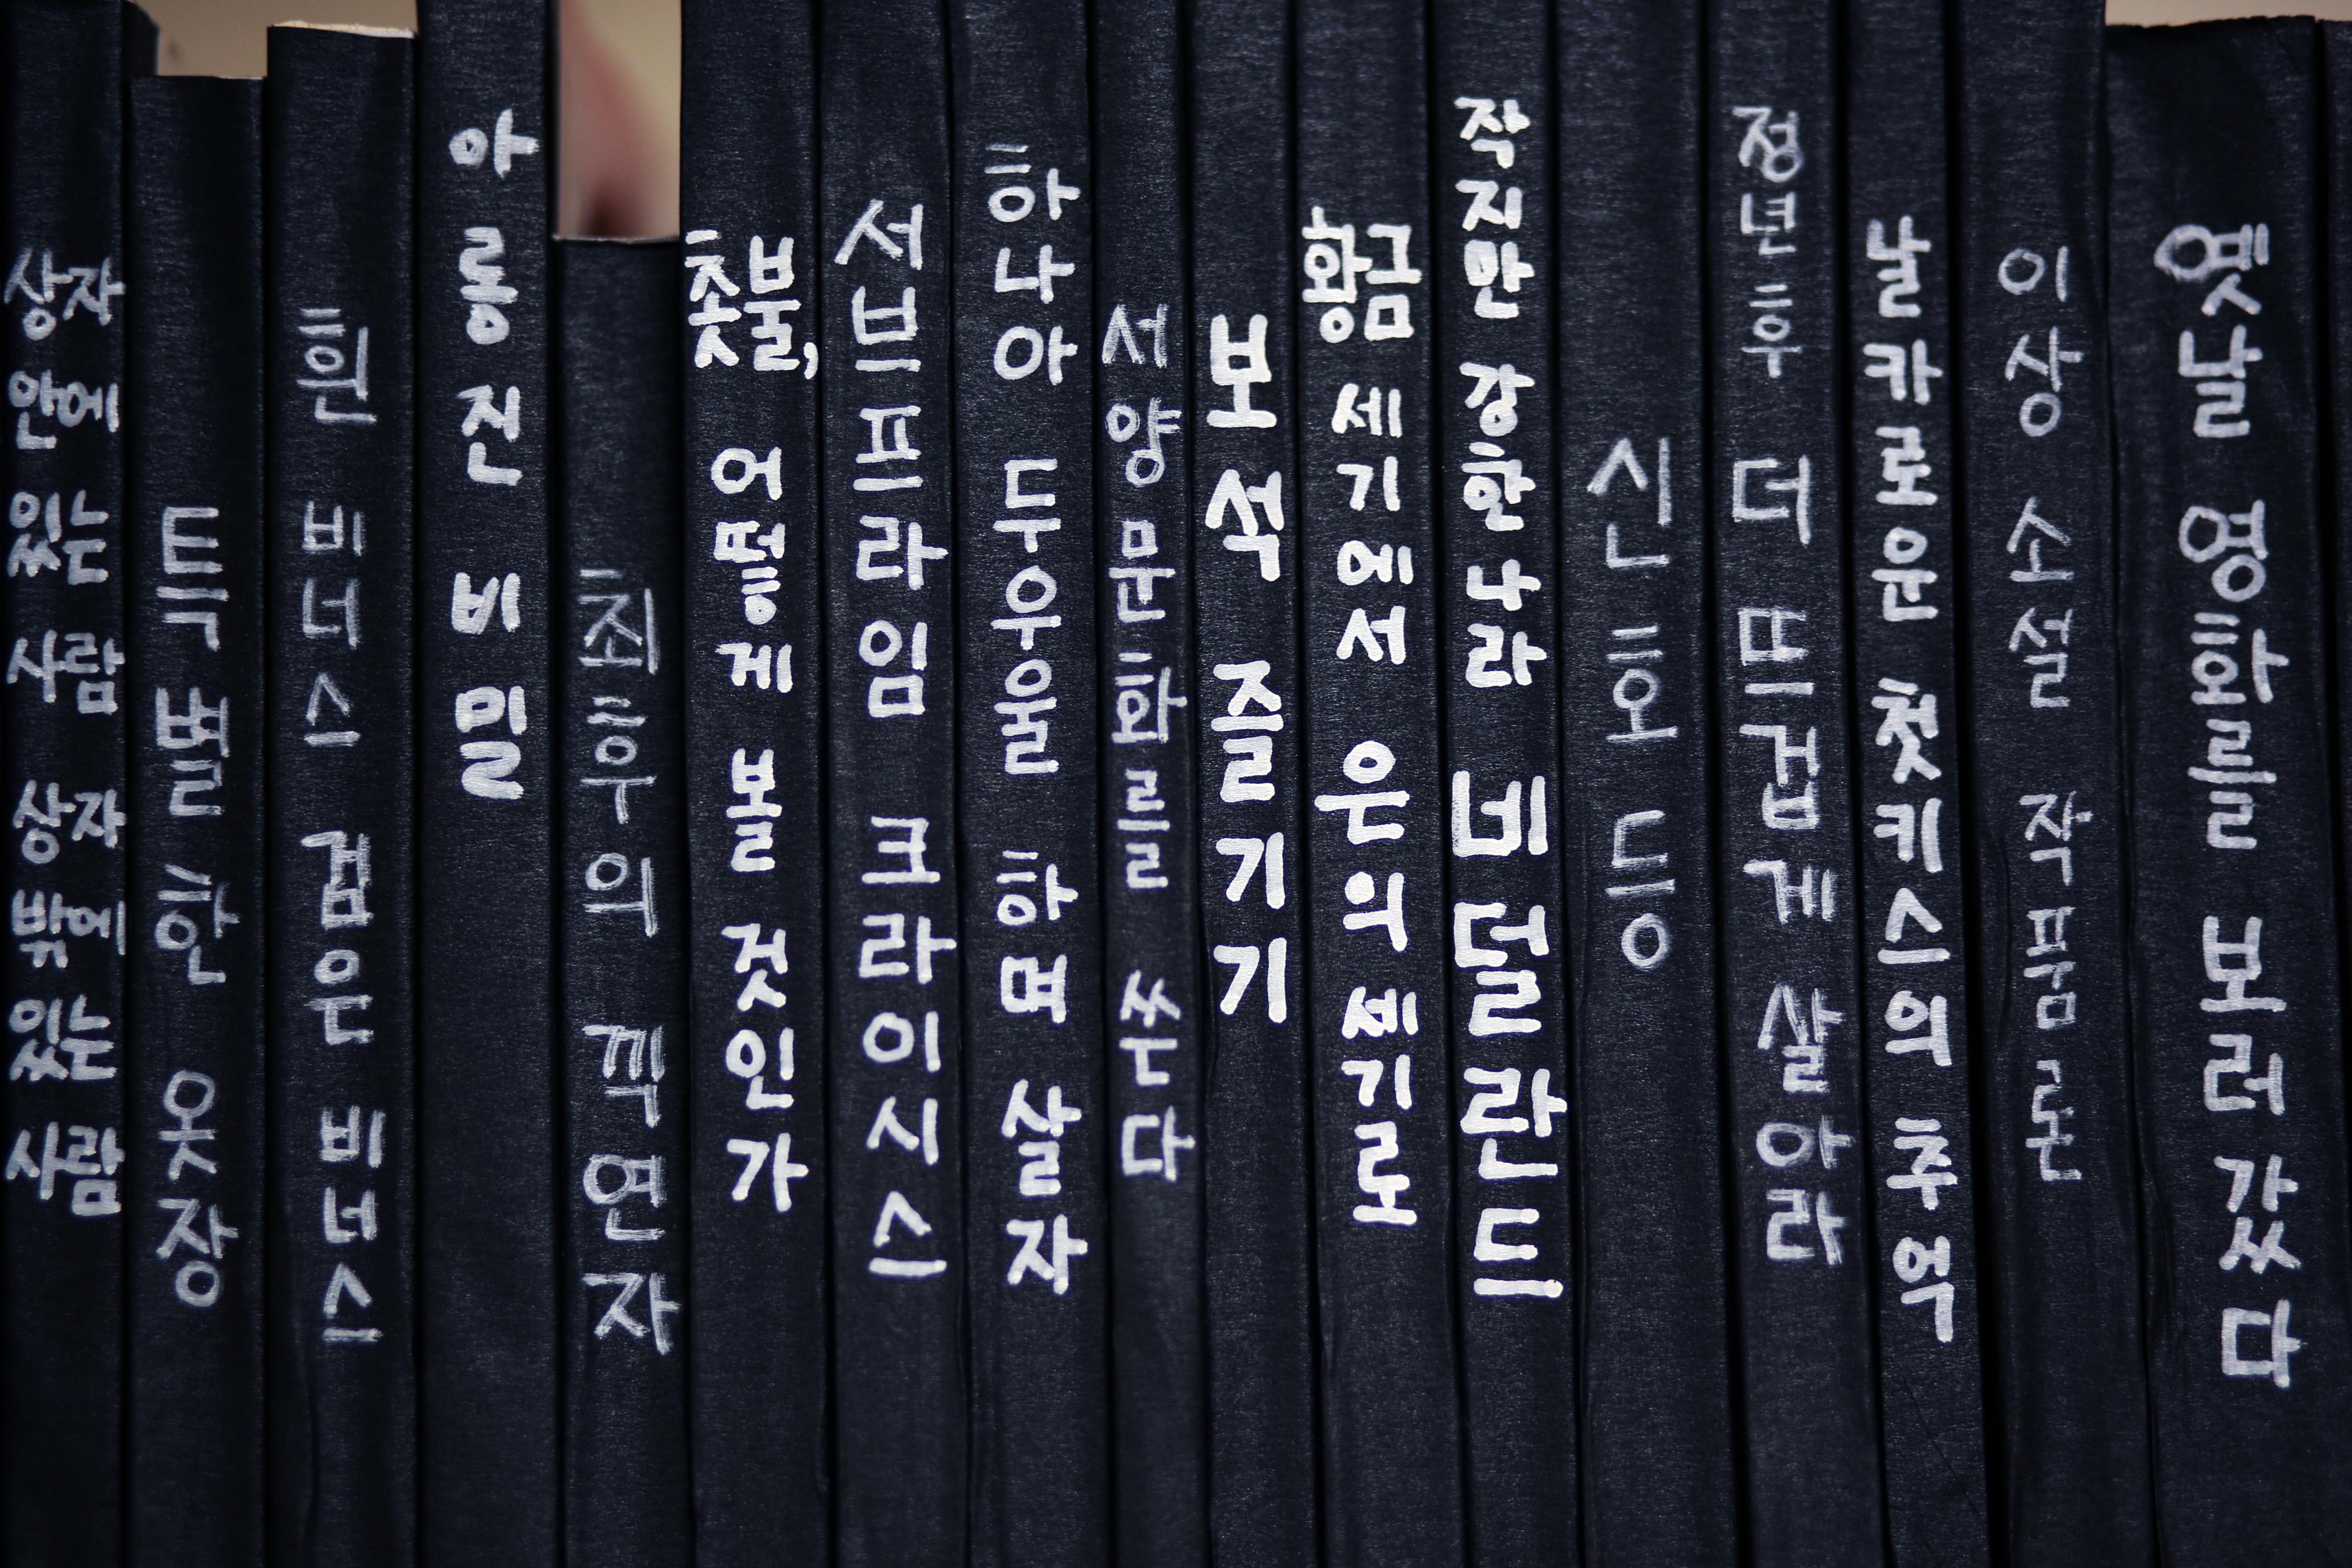 상자 안에 있는 사람 상자 밖에 있는 사람
특별한 옷장
흰 비너스 검은 비너스
아롱진 비밀
최후의 끽연자
촛불, 어떻게 볼 것인가
서브프라임 크라이시스
하나아 두우울 하며 살자
서양문화를 쏘다
보석 즐기기
황금 세기에서 은의 세기로
작지만 강한나라 네덜란드
신호등
정년후 더 뜨겁게 살아라
날카로운 첫키스의 추억
이상 소설 작품론
옛날 영화를 보러 갔다